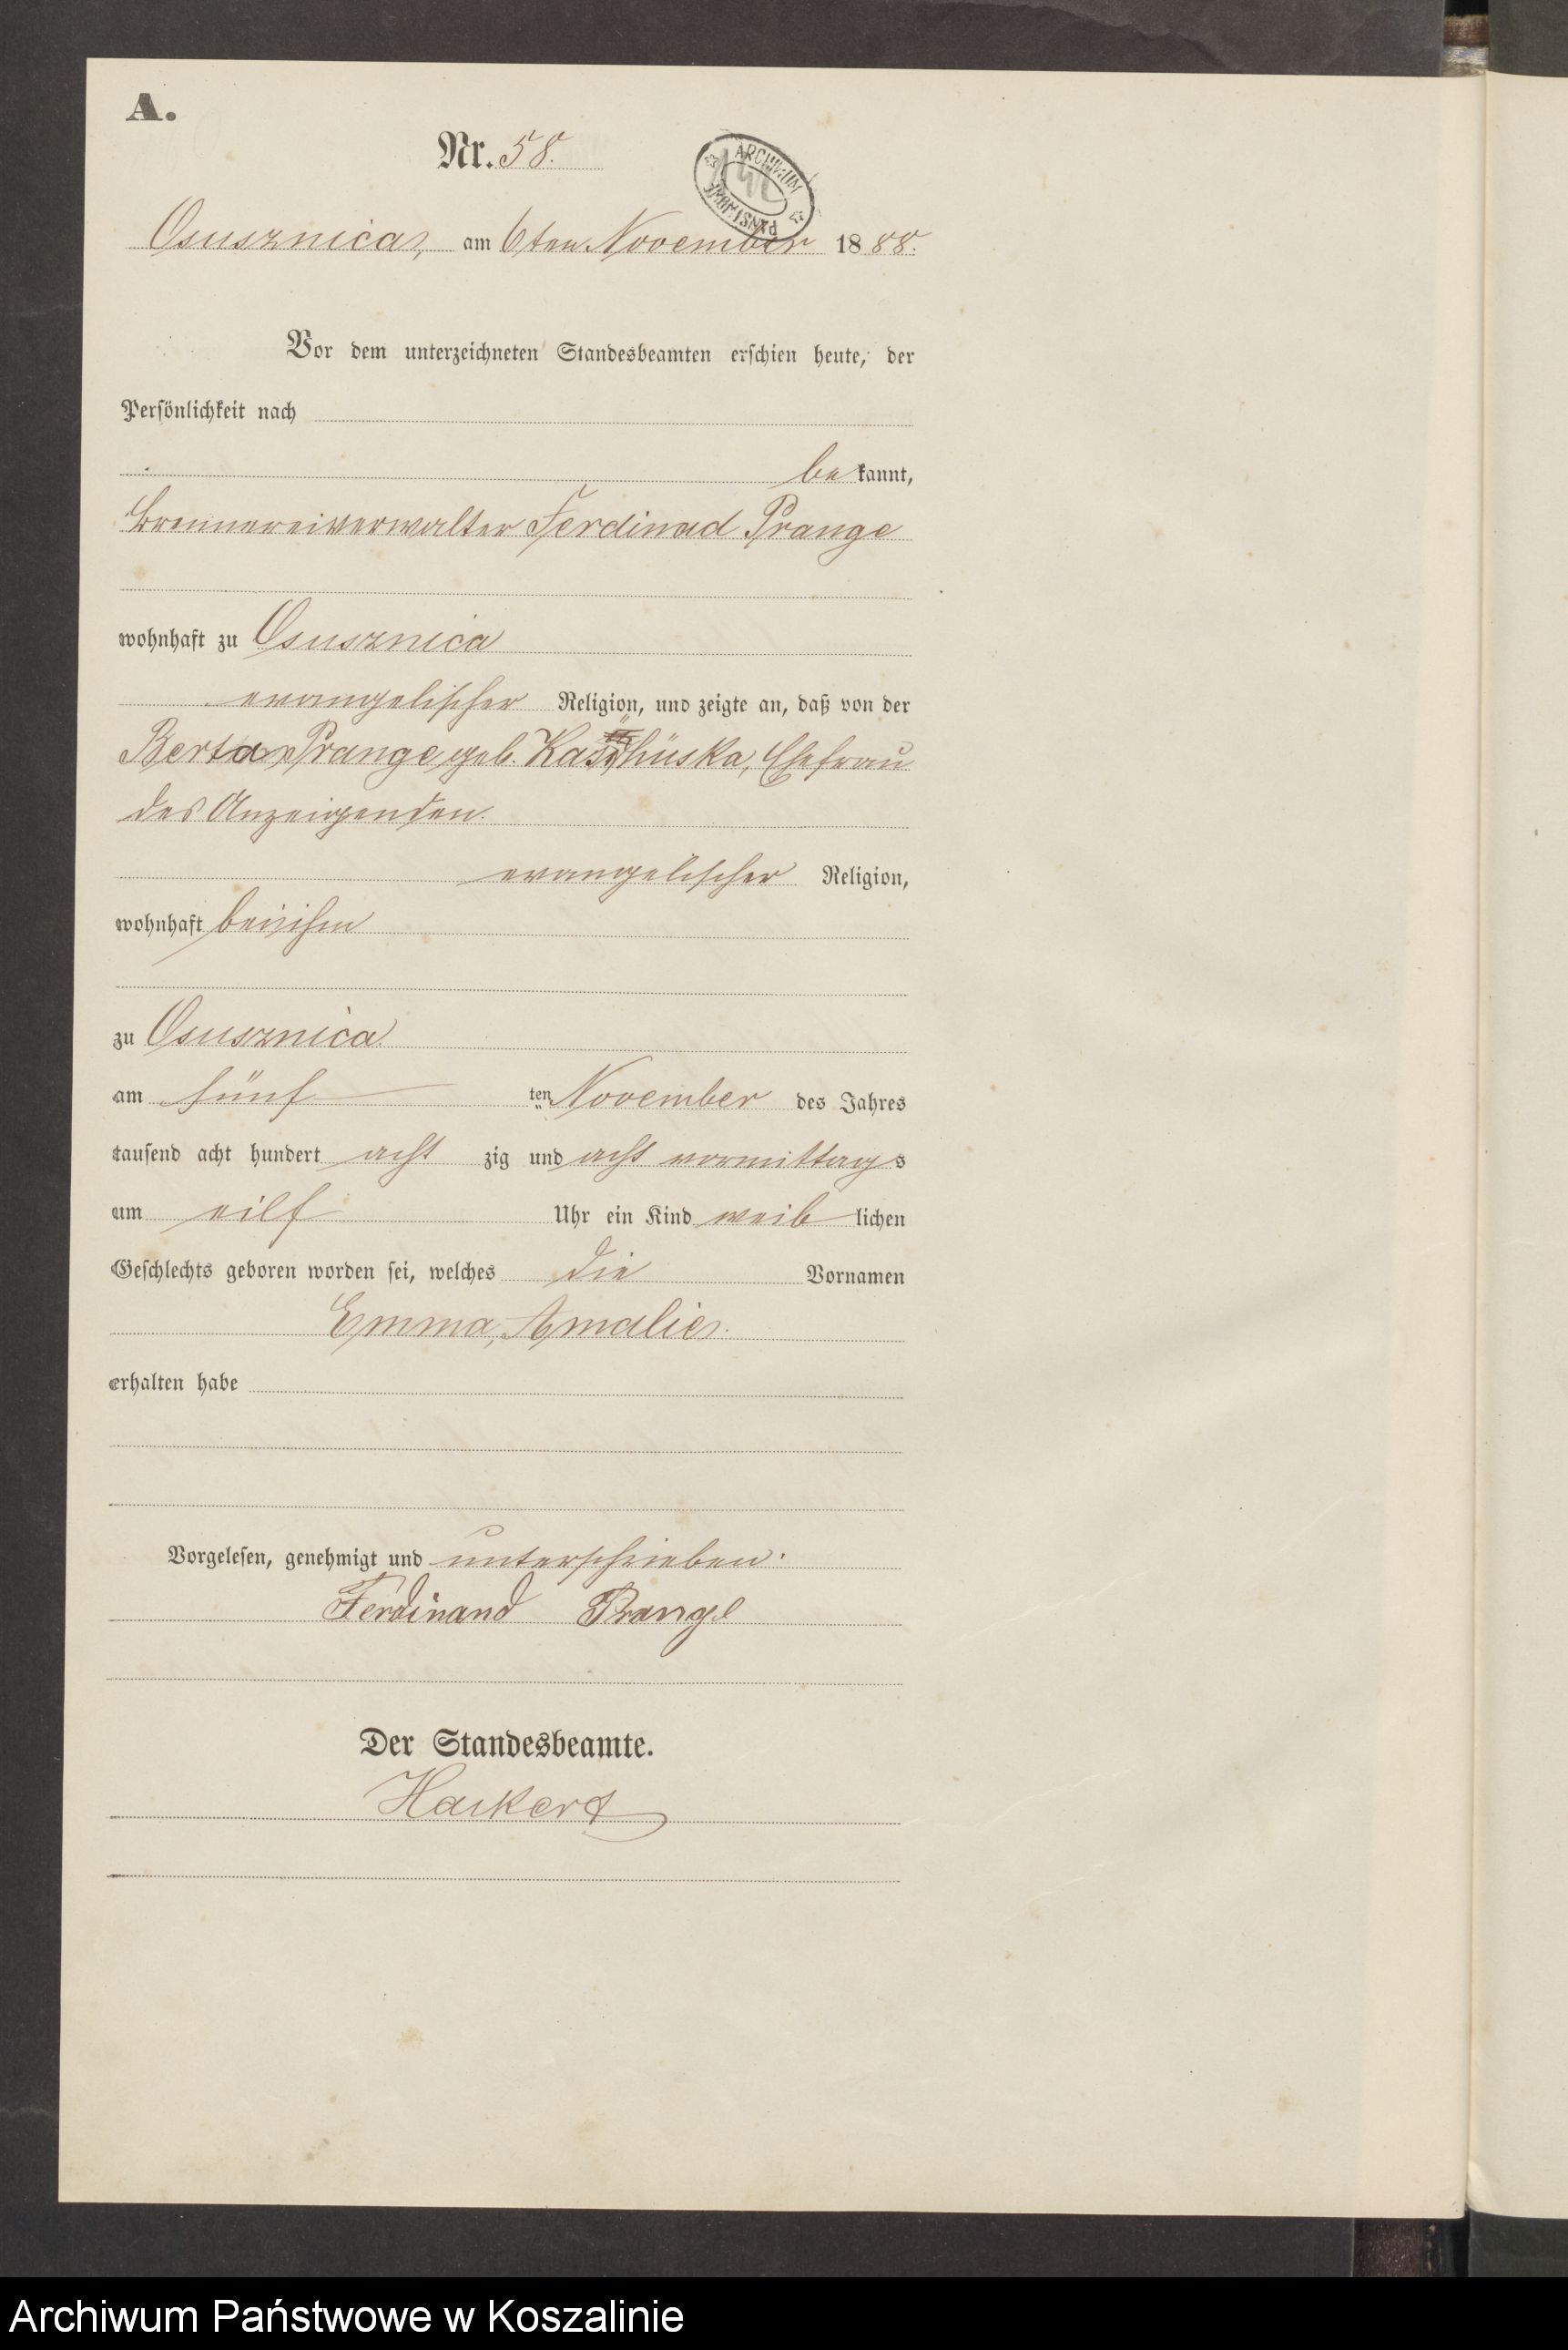 A.
Nr. 58.
ARCHIWUM
PAŃSTWOWE
Osusznica, am 6ten November 1888.
Vor dem unterzeichneten Standesbeamten erschien heute, der
Persönlichkeit nach
bekannt,
Brennereiverwalter Ferdinad Prange
wohnhaft zu Osusznica
evangelischer Religion, und zeigte an, daß von der
Berta Prange geb. Ehefrau
des Anzeigenden.
evangelischer Religion,
wohnhaft bei ihm
zu Osusznica
am fünf ten November des Jahres
tausend acht hundert acht zig und acht vormittags
um eilf Uhr ein Kind weiblichen
Geschlechts geboren worden sei, welches die Vornamen
Emma, Amalie.
erhalten habe
Vorgelesen, genehmigt und unterschrieben.
Ferdinand Prange
Der Standesbeamte.
Hackert
Archiwum Państwowe w Koszalinie